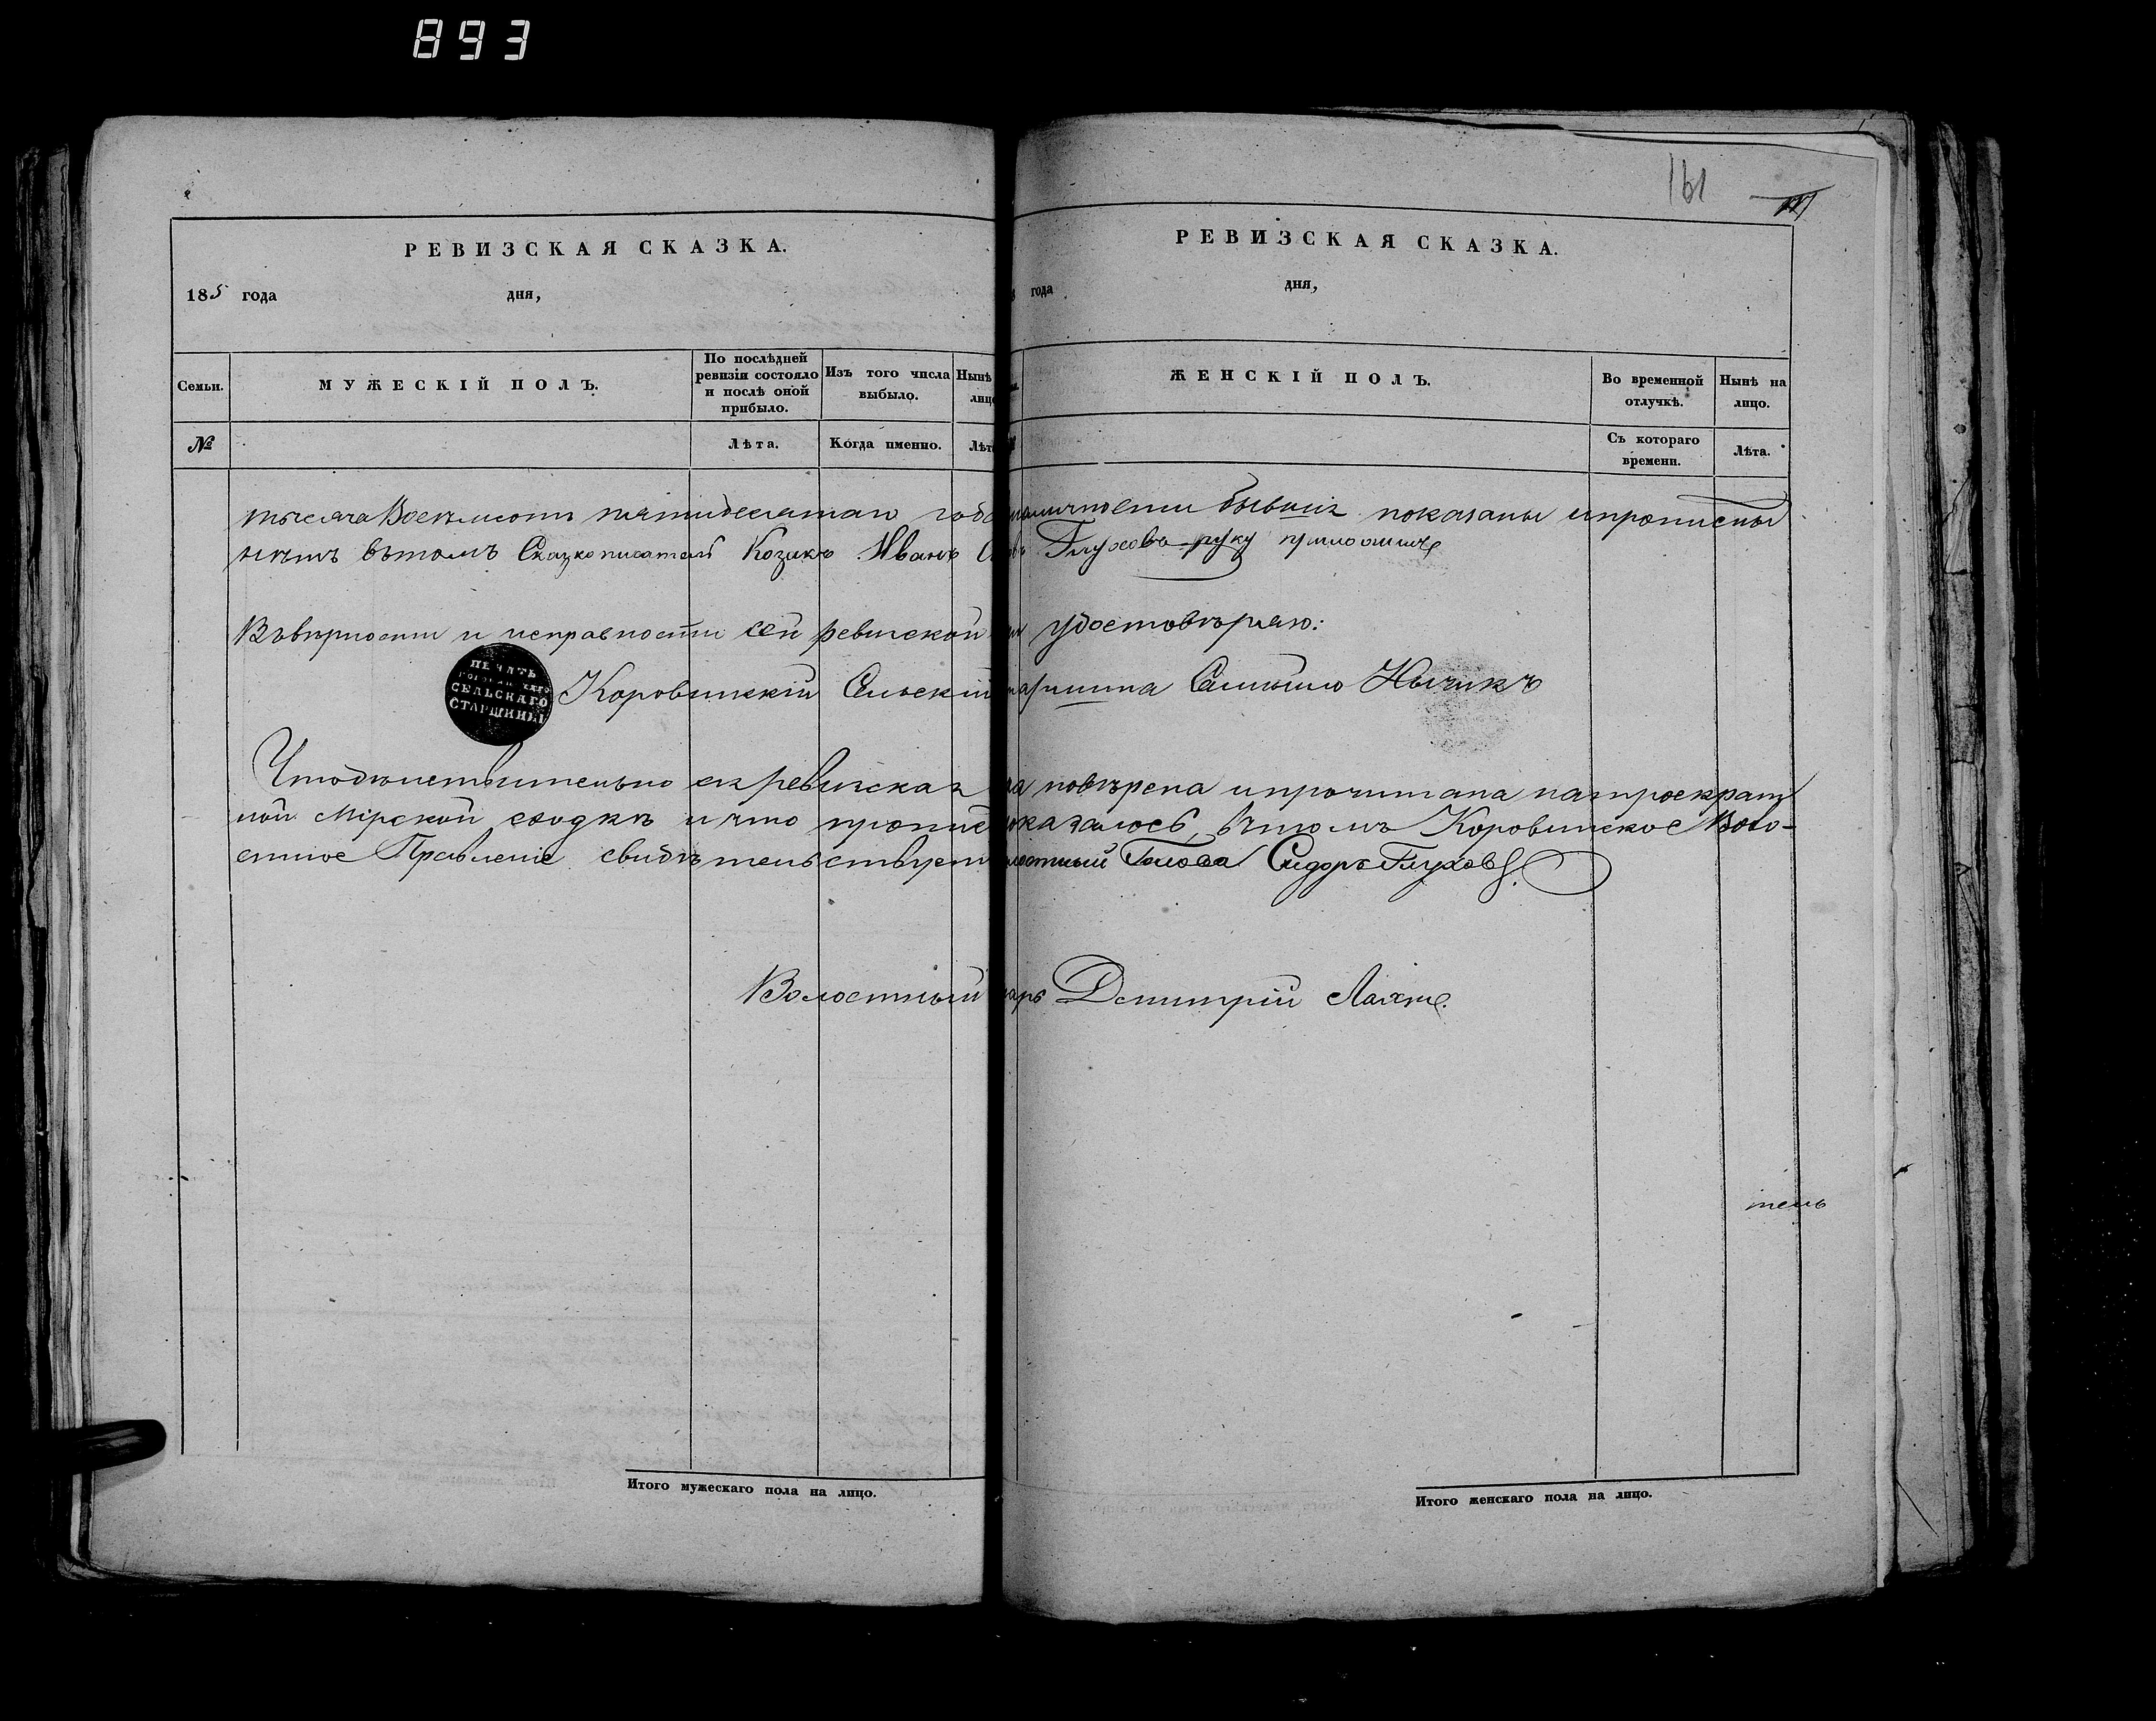 893
161
РЕВИЗСКАЯ СКАЗКА.
185 года дня,
Семьи. МУЖЕСКІЙ ПОЛЪ. По послѣдней ревизіи состояло и послѣ оной прибыло. Изъ того числа выбыло. Нынѣ лицо
№ Лѣта. Когда именно. Лѣт
РЕВИЗСКАЯ СКАЗКА.
года дня,
ЖЕНСКІЙ ПОЛЪ. Во временной отлучкѣ. Нынѣ на лицо.
Съ котораго времени. Лѣта.
тысяча Восемьсотъ пятидесятаго года бывшія показаны ипрописны
вътомъ Сказкописатель Козакъ Иванъ Глуховъ руку приложилъ
Въвѣрности и исправности сей ревиской удостовѣряю:
ПЕЧАТЬ
СЕЛЬСКАГО
СТАРШИНЫ
Коровинскій Сельскій Самойло Нычикъ
Чтодѣйствительно сія ревиская повѣрена ипрочитана натроекрат
ной Мірской сходкѣ и что вътомъ Коровинское Воло-
стное Правленіе свидѣтельствуетъ Голова Сидоръ Глуховъ.
Волостный Дмитрій
тель
Итого мужескаго пола на лицо.
Итого женскаго пола на лицо.